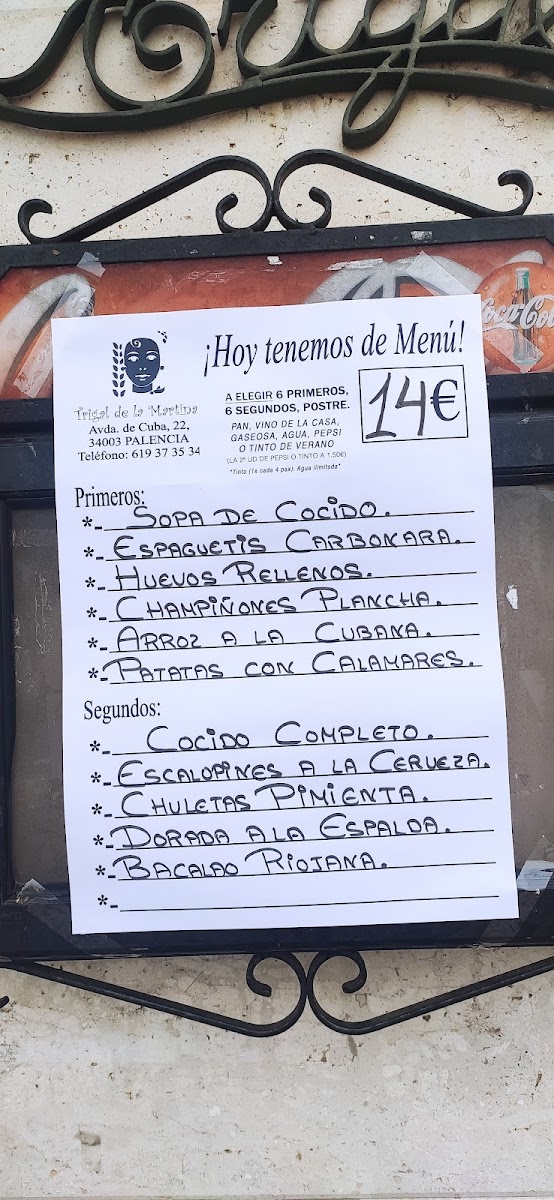 Coca-Cola
¡Hoy tenemos de Menú!
Trigal de la Martina
Avda. de Cuba, 22,
34003 PALENCIA
Teléfono: 619 37 35 34
A ELEGIR 6 PRIMEROS,
6 SEGUNDOS, POSTRE.
PAN, VINO DE LA CASA,
GASEOSA, AGUA, PEPSI
O TINTO DE VERANO
(LA 2ª UD DE PEPSI O TINTO A 1,50€)
*Tinto (1x cada 4 pax). Agua ilimitada*
14€
Primeros:
*- SOPA DE COCIDO.
*- ESPAGUETIS CARBONARA.
*- HUEVOS RELLENOS.
*- CHAMPIÑONES PLANCHA.
*- ARROZ A LA CUBANA.
*- PATATAS CON CALAMARES.
Segundos:
*- COCIDO COMPLETO.
*- ESCALOPINES A LA CERVEZA.
*- CHULETAS PIMIENTA.
*- DORADA A LA ESPALDA.
*- BACALAO RIOJANA.
*-